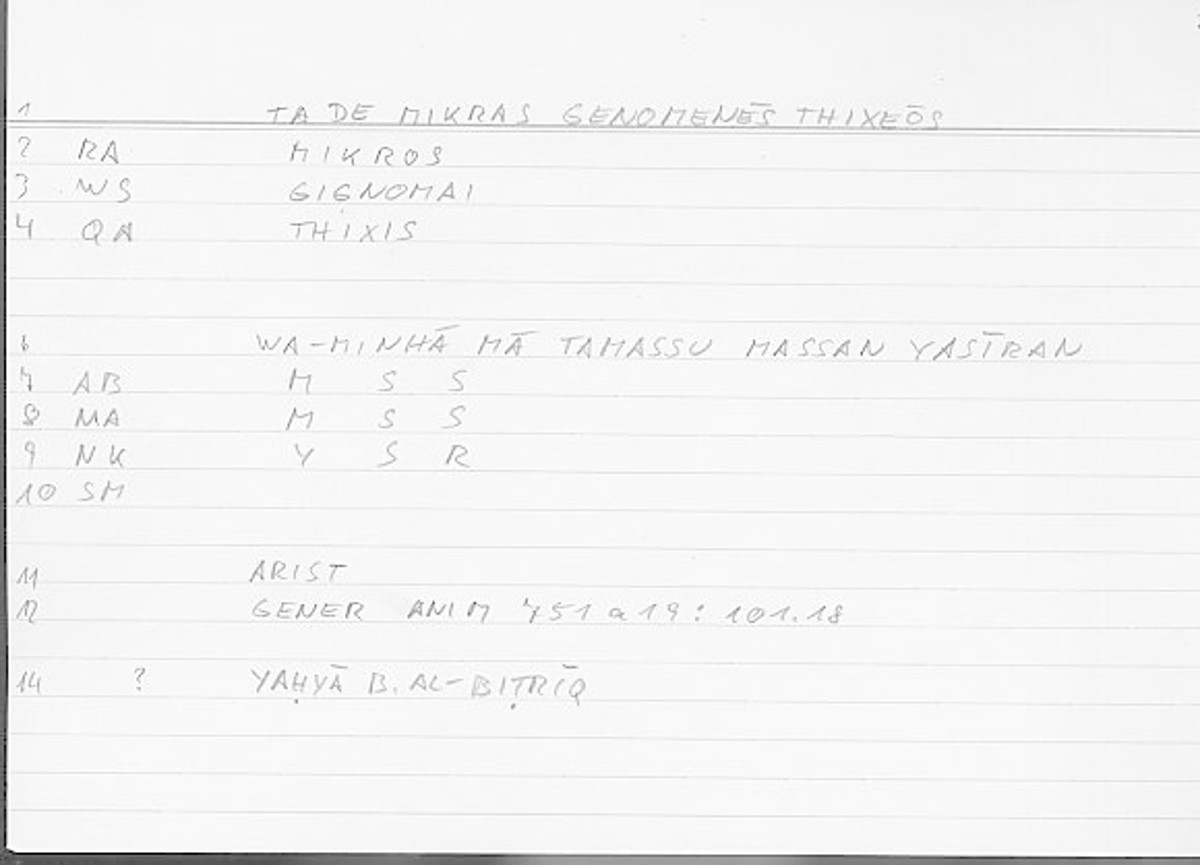 1 TA DE MIKRAS GENOMENĒS THIXEŌS
2 RA MIKROS
3 WS GIGNOMAI
4 QA THIXIS
6 WA-MINHĀ MĀ TAMASSU MASSAN YASĪRAN
7 AB M S S
8 MA M S S
9 NK Y S R
10 SM
11 ARIST
12 GENER ANIM 751 a 19 : 101.18
14 ? YAḤYĀ B. AL-BIṬRĪQ